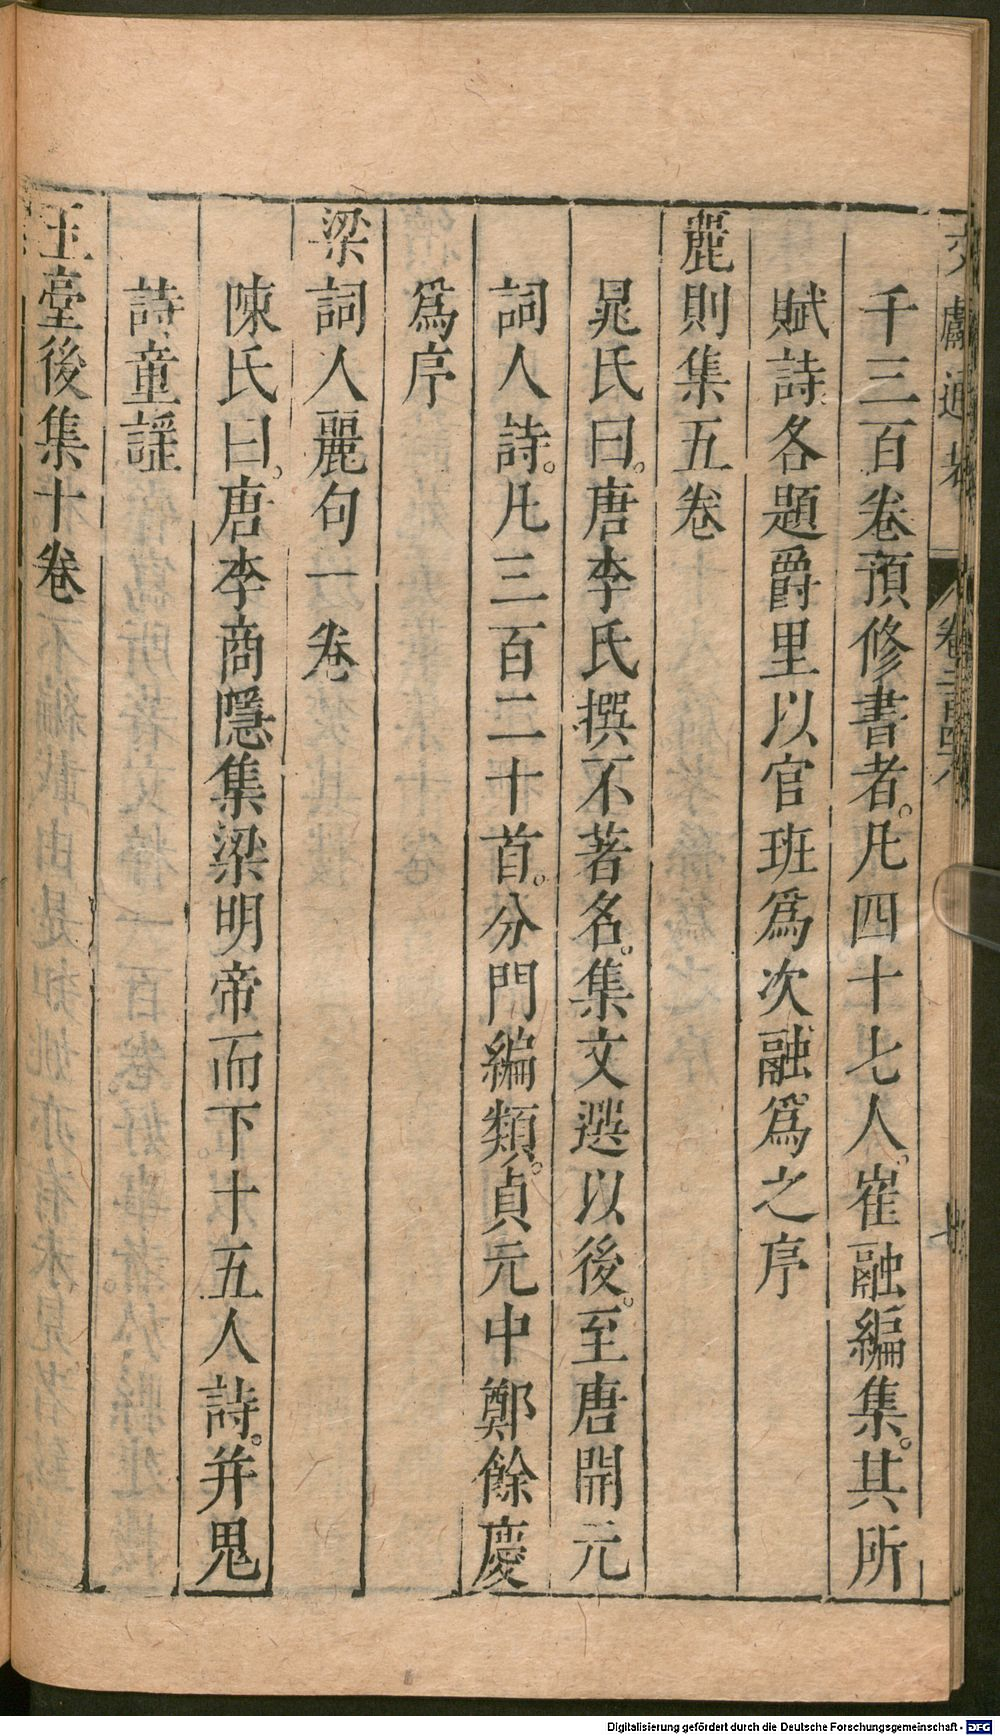 文獻通考 卷二百四八
千三百卷預修書者。凡四十七人。崔融編集。其所
賦詩各題爵里以官班爲次融爲之序
麗則集五卷
晁氏曰。唐李氏撰不著名。集文選以後。至唐開元
詞人詩。凡三百二十首。分門編類。貞元中鄭餘慶
爲序
梁詞人麗句一卷
陳氏曰。唐李商隱集梁明帝而下十五人詩。并鬼
詩童謡
玉臺後集十卷
Digitalisierung gefördert durch die Deutsche Forschungsgemeinschaft - DFG